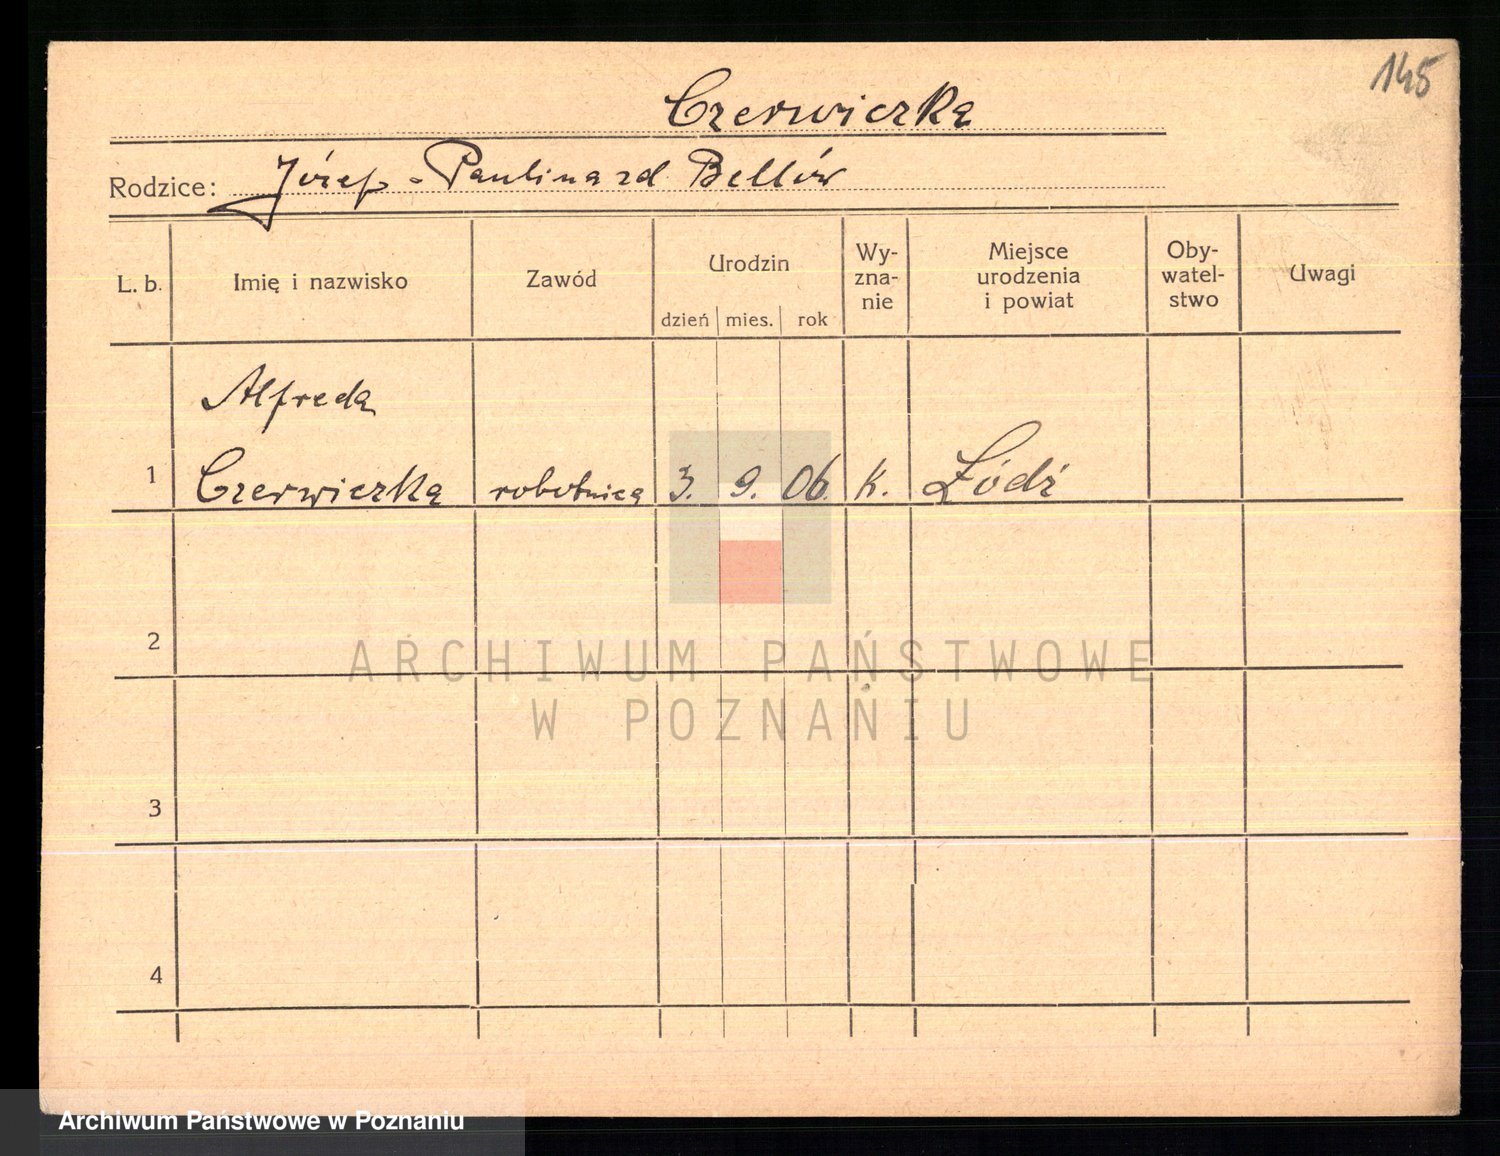 145
Czerwiczka
Rodzice: Józef - Paulina zd Bellów
L. b.
Imię i nazwisko
Zawód
Urodzin
dzień mies. rok
Wy-
zna-
nie
Miejsce
urodzenia
i powiat
Oby-
watel-
stwo
Uwagi
Alfreda
1 Czerwiczka robotnica 3. 9. 06. k. Łódź
2
ARCHIWUM PAŃSTWOWE
W POZNANIU
3
4
Archiwum Państwowe w Poznaniu